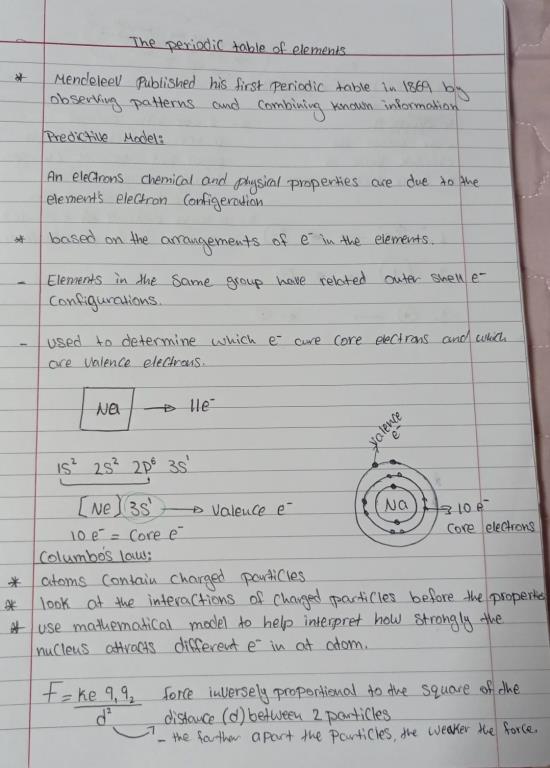 The periodic table of elements
* Mendeleev Published his first Periodic table in 1869 by
observing patterns and combining known information
Predictive Model:
An electrons chemical and physical properties are due to the
element's electron Configeration
* based on the arrangements of e⁻ in the elements.
- Elements in the same group have related outer shell e⁻
Configurations.
- used to determine which e⁻ are core electrons and which
are valence electrons.
Na → 11e⁻
valence
e⁻
1s² 2s² 2p⁶ 3s¹
[Ne] 3s¹ → valence e⁻
Na → 10 e⁻
core electrons
10 e⁻ = core e⁻
Columbo's law:
* atoms contain charged particles
* look at the interactions of charged particles before the propertie
* use mathematical model to help interpret how strongly the
nucleus attracts different e⁻ in at atom.
F = ke q₁ q₂ / d² force inversely proportional to the square of the
distance (d) between 2 particles
- the farther apart the particles, the weaker the force.